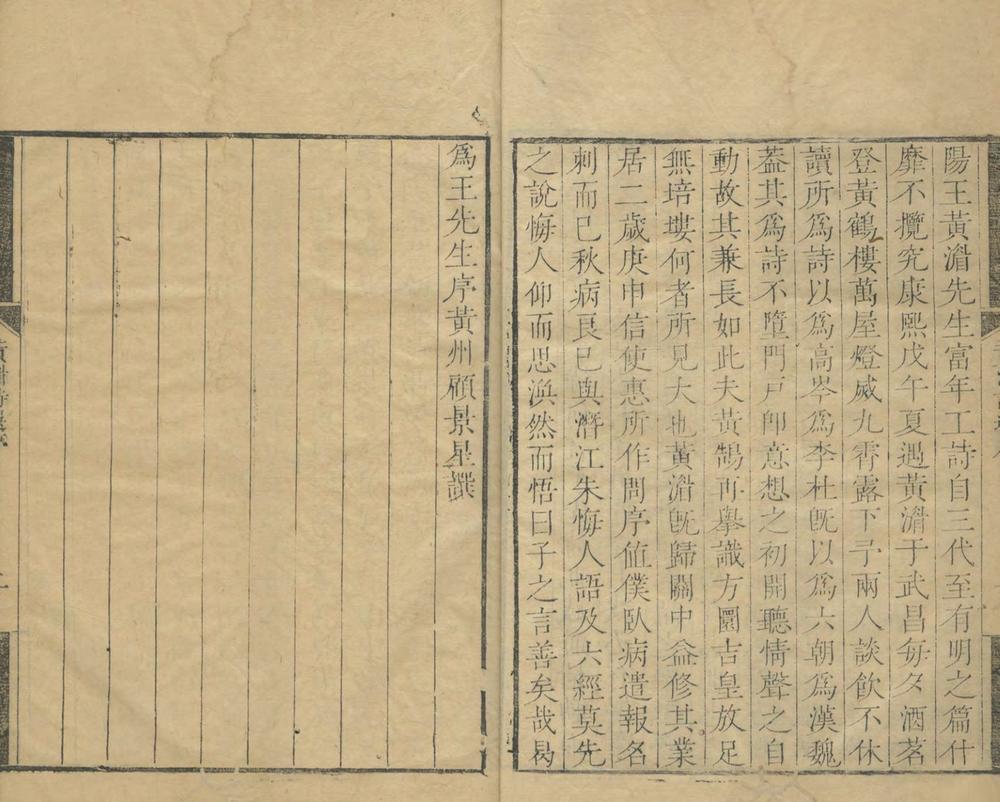 陽王黃湄先生富年工詩自三代至有明之篇什
靡不攬究康熙戊午夏遇黃湄于武昌每夕酒茗
登黃鶴樓萬屋燈烕九霄露下予兩人談飲不休
讀所爲詩以爲高岑爲李杜旣以爲六朝爲漢魏
葢其爲詩不墮門戸卽意想之初開聽情聲之自
動故其兼長如此夫黃鵠再舉識方圜吉皇放足
無培塿何者所見大也黃湄旣歸關中益修其業
居二歲庚申信使惠所作問序值僕臥病遣報名
刺而已秋病良已與潛江朱悔人語及六經莫先
之說悔人仰而思渙然而悟曰子之言善矣哉曷
爲王先生序黃州顧景星譔